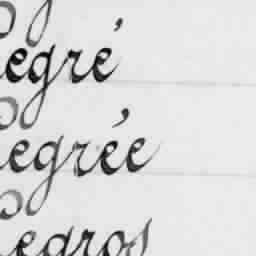 egré
egrée
egros